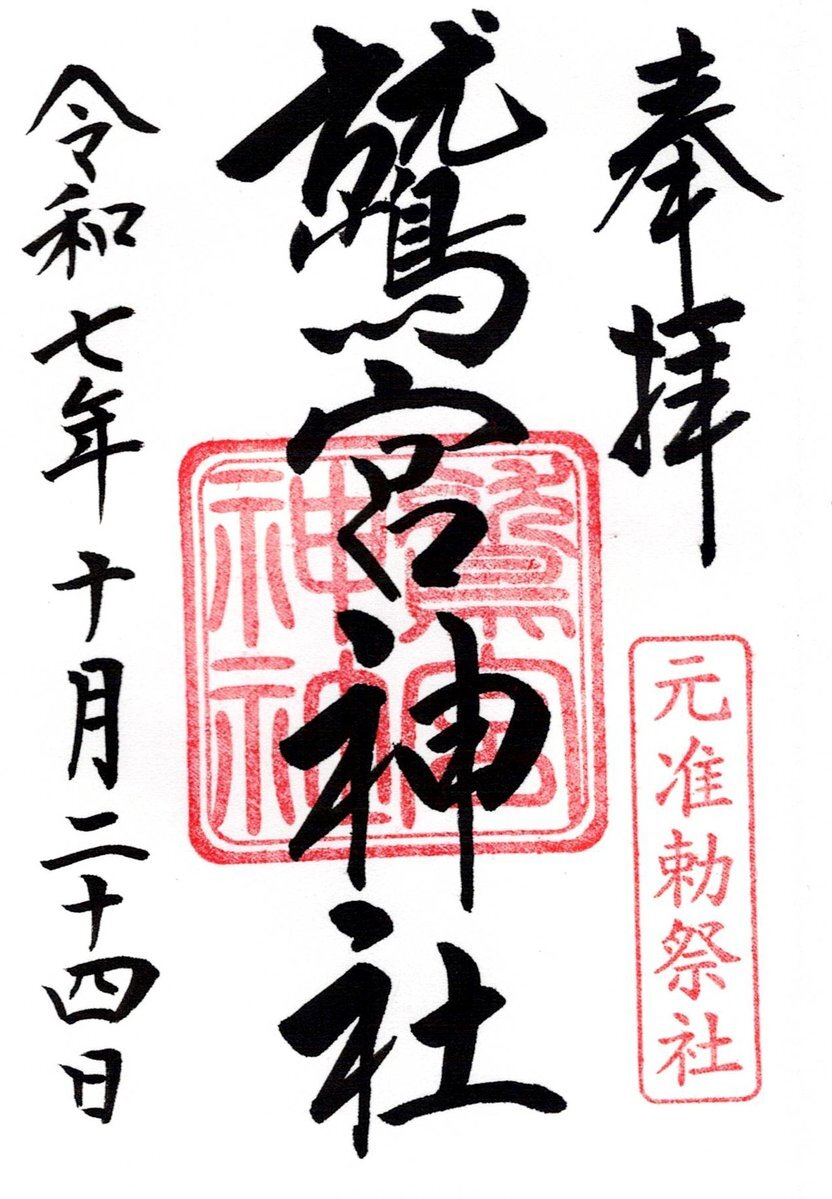 奉拝
元准勅祭社
鷲宮神社
鷲宮
神社
令和七年十月二十四日